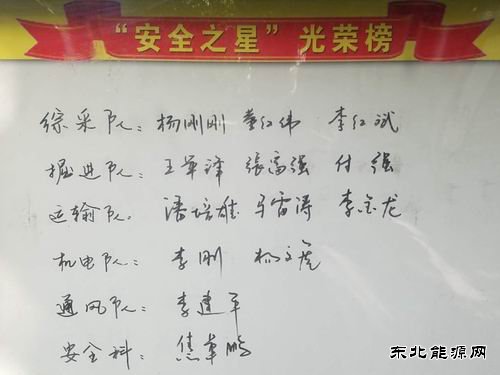 “安全之星”光荣榜
综采队：杨刚刚 董红伟 李红斌
掘进队：王军泽 张高强 付强
运输队：潘培雄 马雷涛 李金龙
机电队：李刚 杨文虎
通风队：李建平
安全科：焦卓鹏
东北能源网